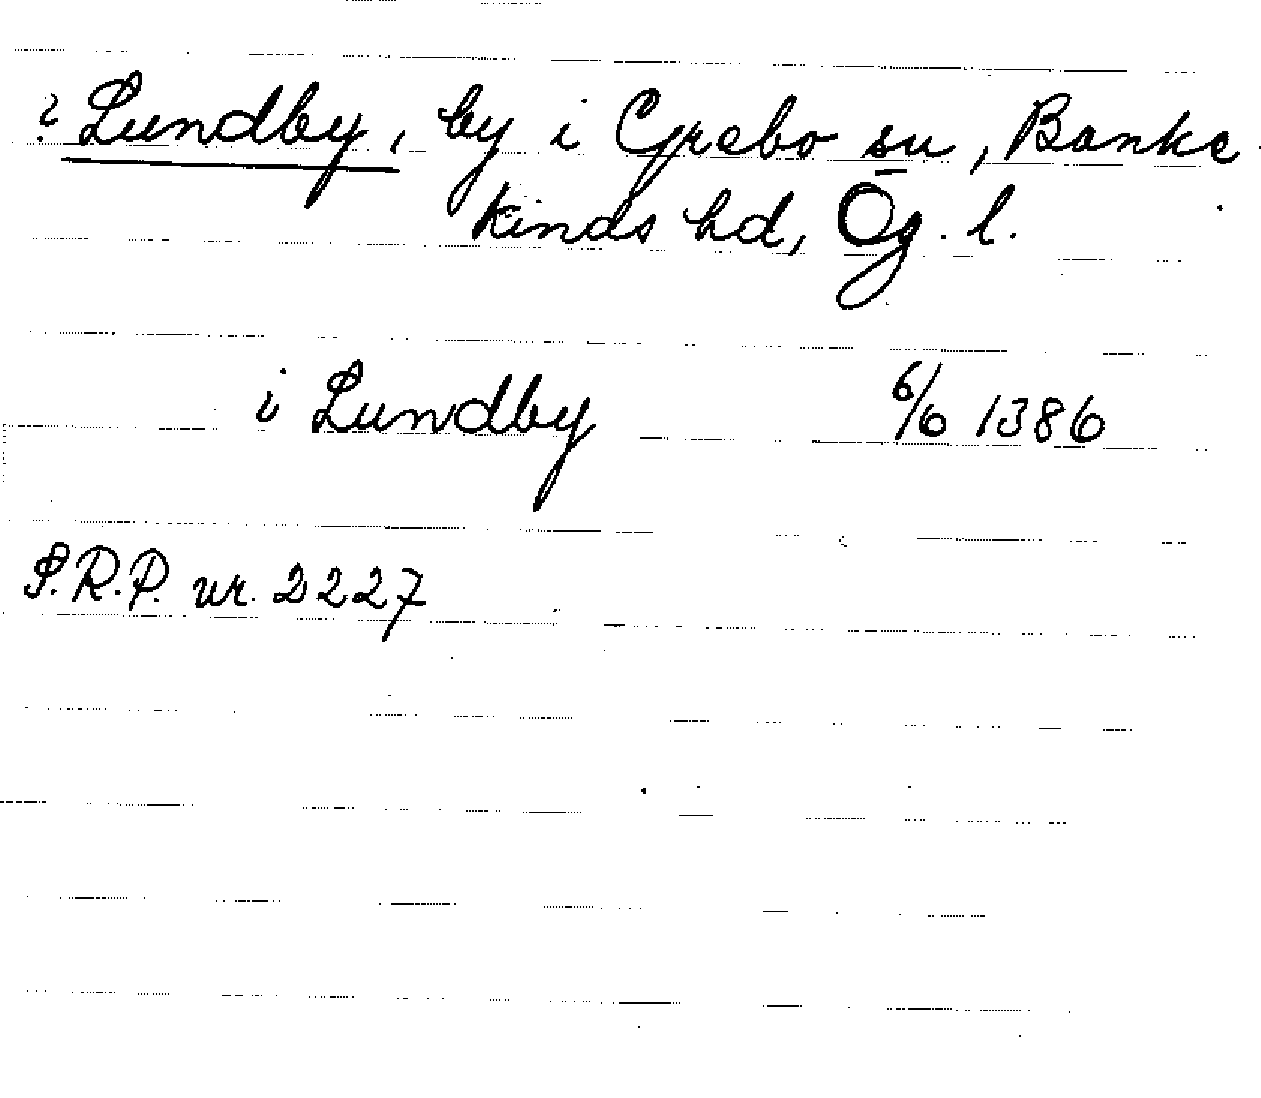 ? Lundby, by i Grebo sn, Banke
kinds hd, Ög. l.
i Lundby 6/6 1386
S.R.P. nr. 2227